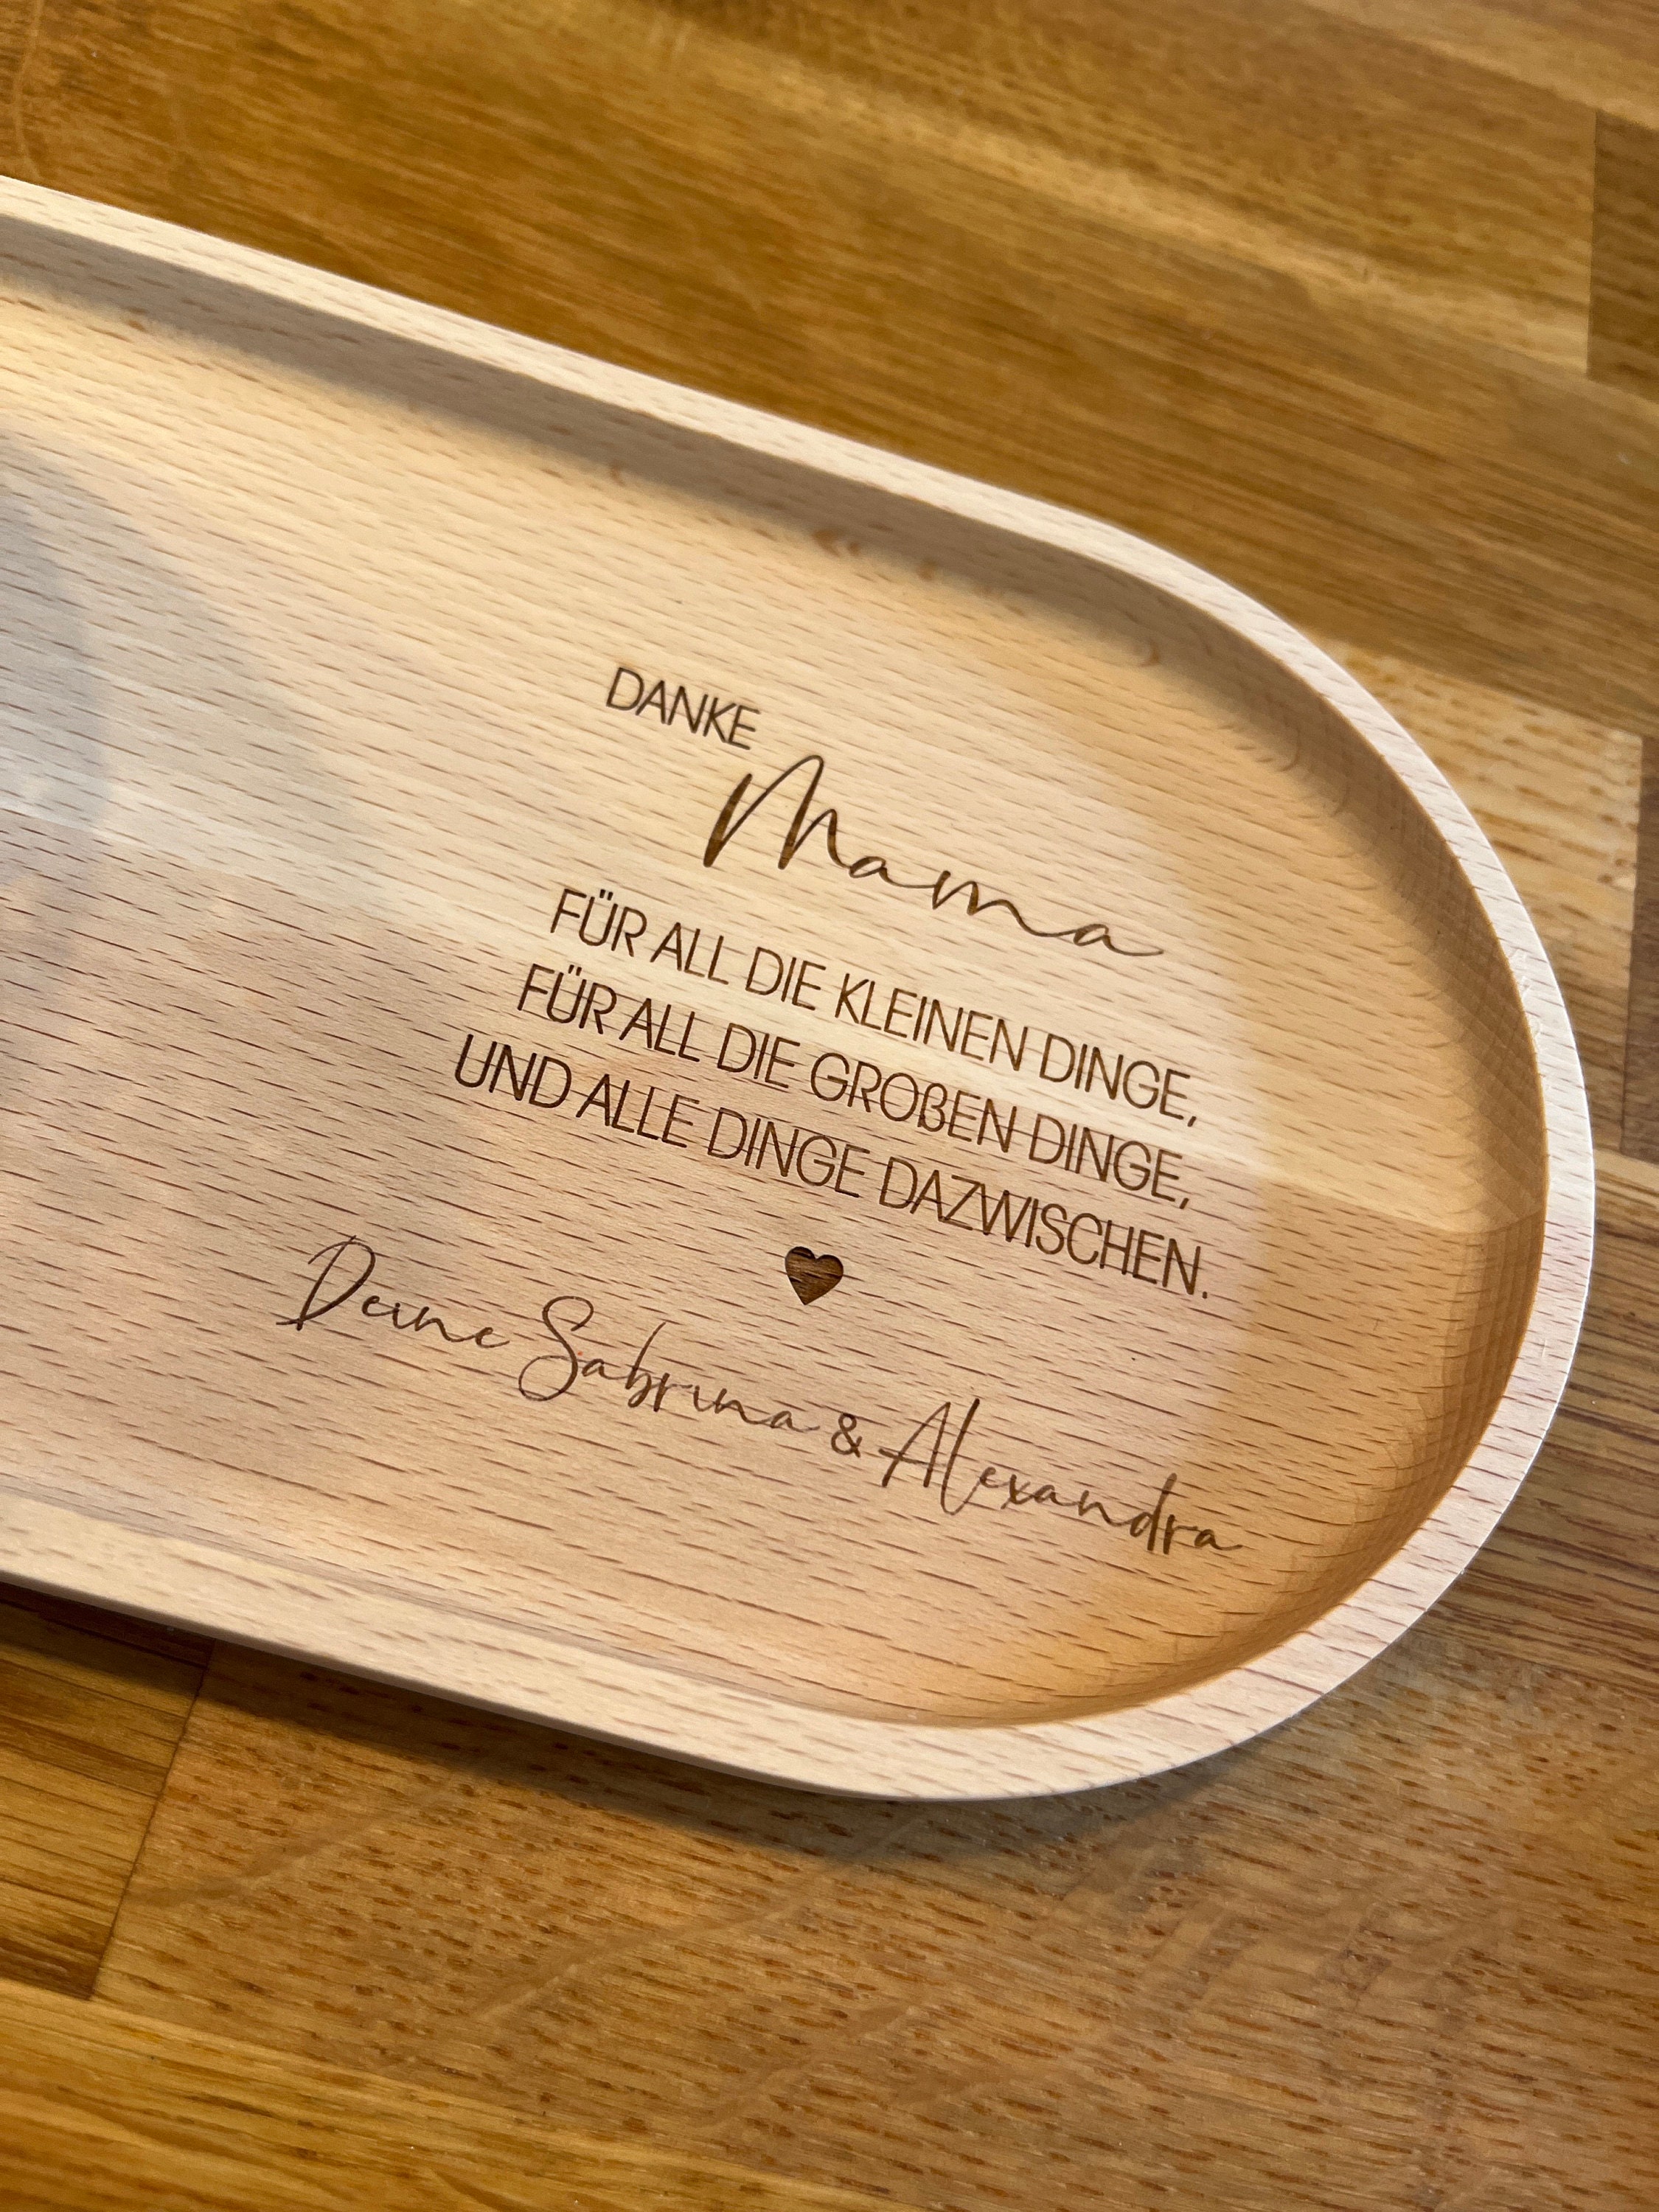 DANKE
Mama
FÜR ALL DIE KLEINEN DINGE,
FÜR ALL DIE GROßEN DINGE,
UND ALLE DINGE DAZWISCHEN.
Deine Sabrina & Alexandra